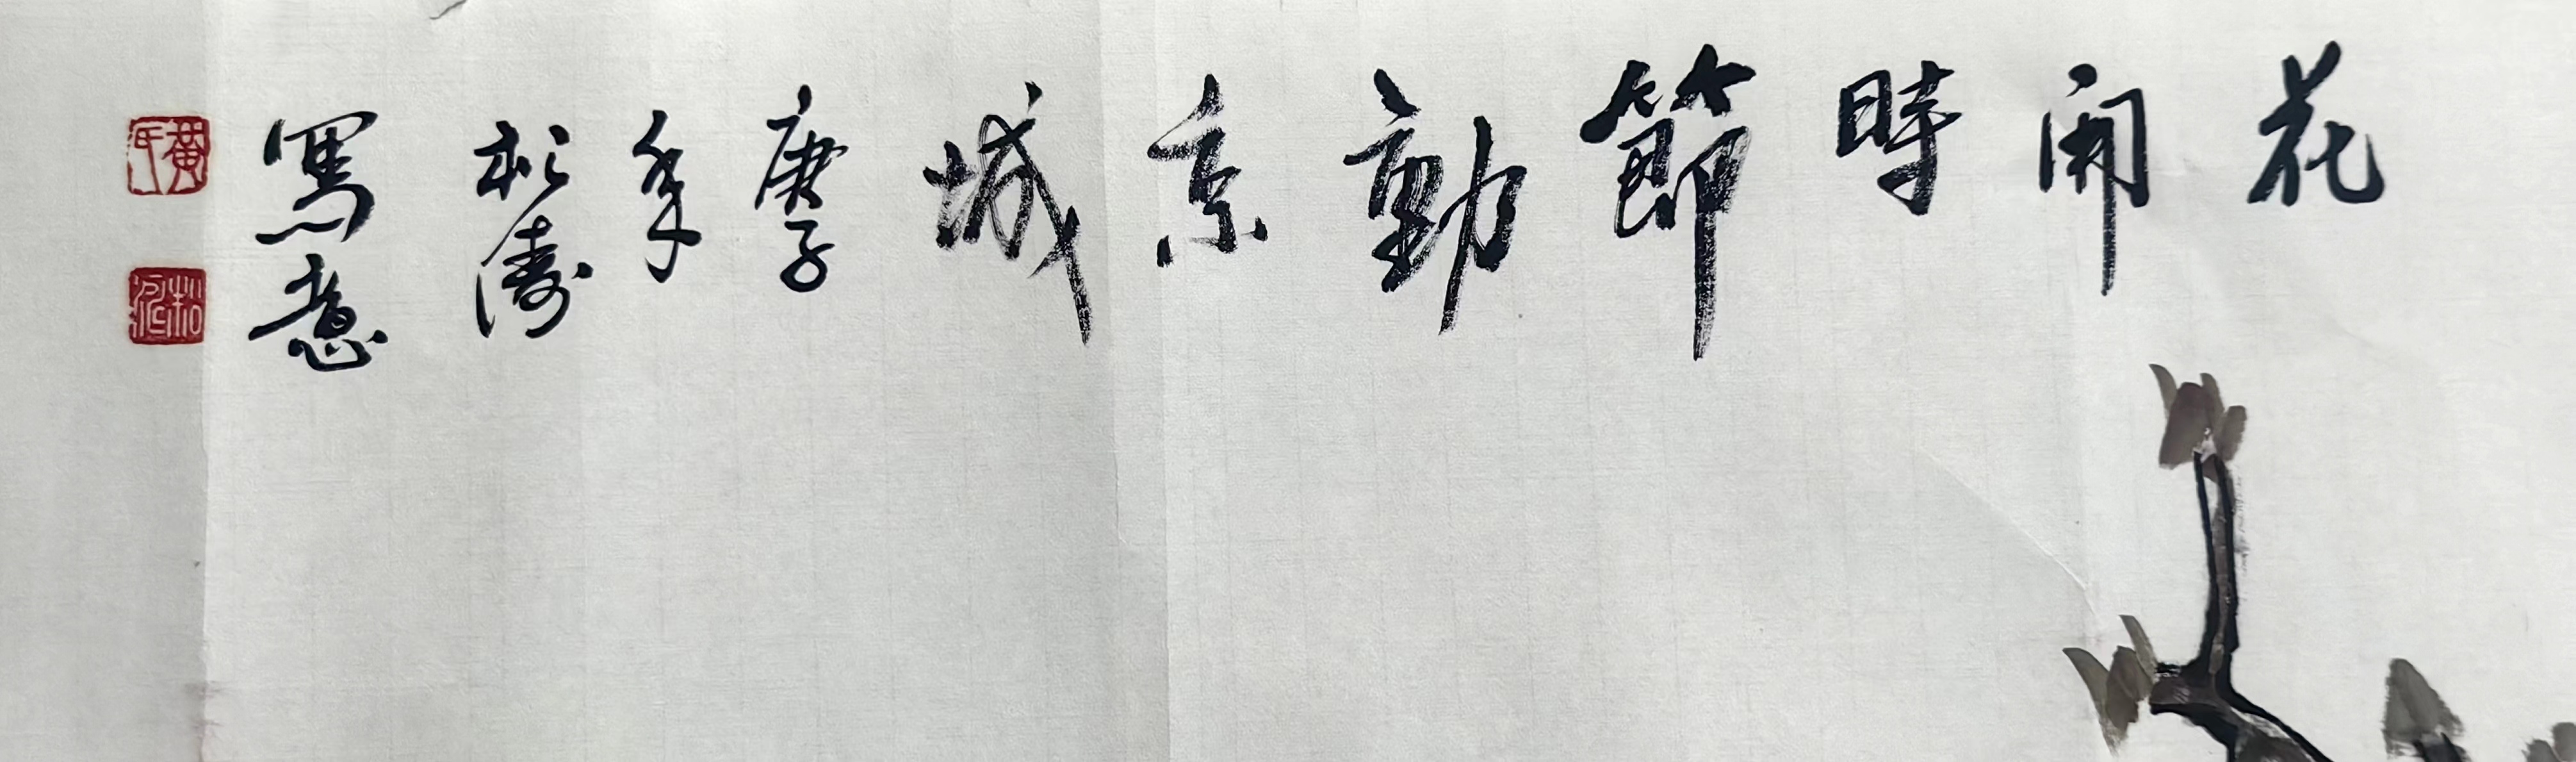 花開時節動京城
庚子
年
松濤
寫意
黃氏